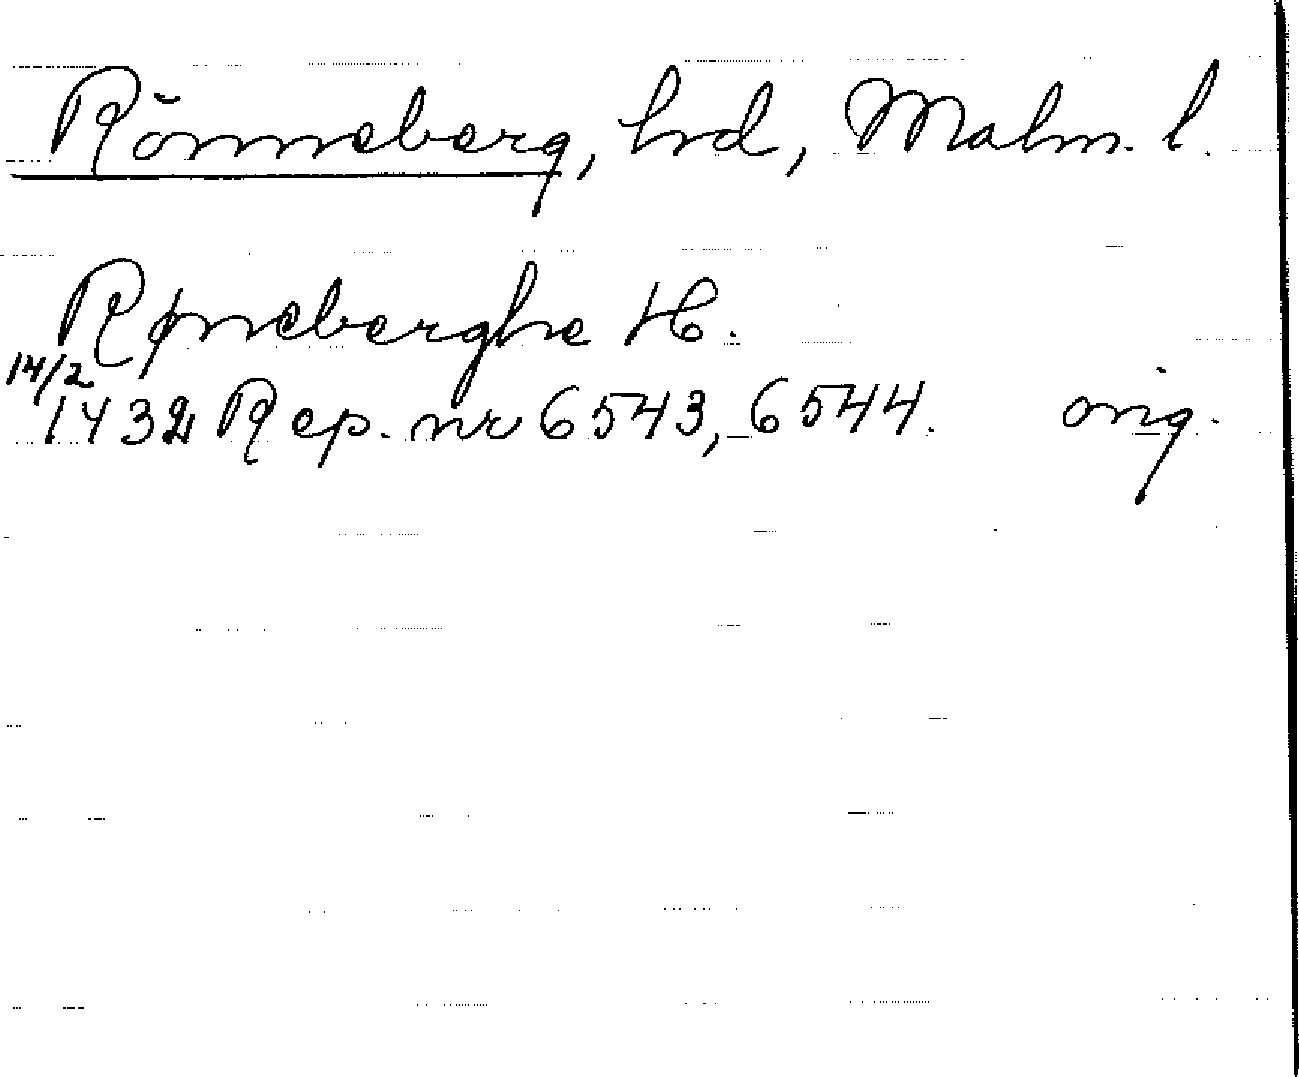 Rönneberg, hrd, Malm. l.
Røneberghe H.
14/2
1432 Rep. nr 6543, 6544. orig.